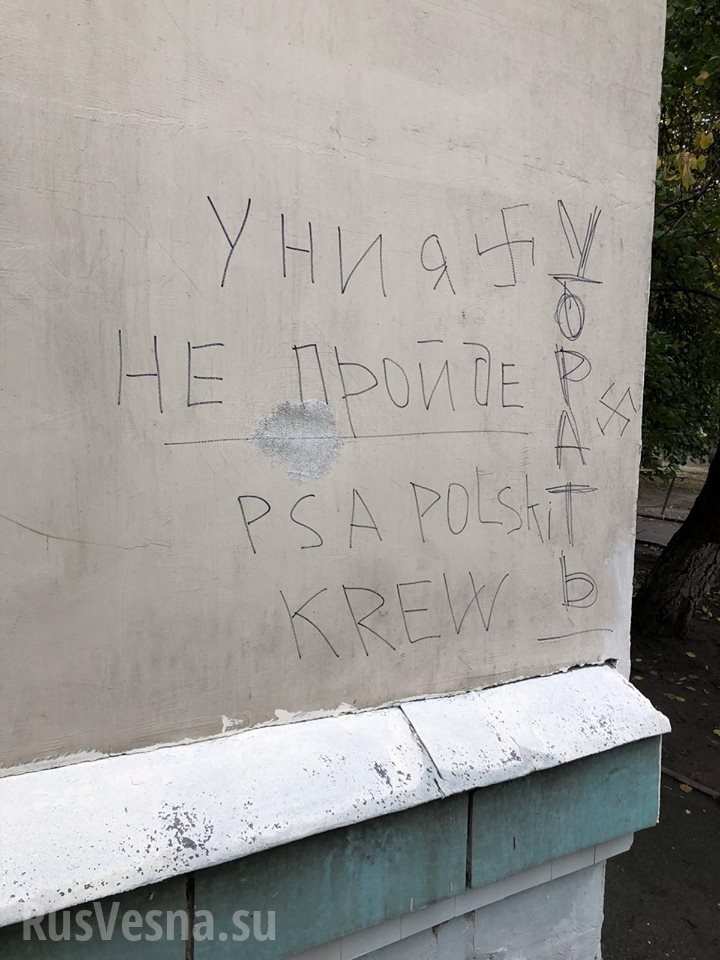 УНИЯ
НЕ пройде
PSA POLSki
KREW
УБРАТЬ
RusVesna.su